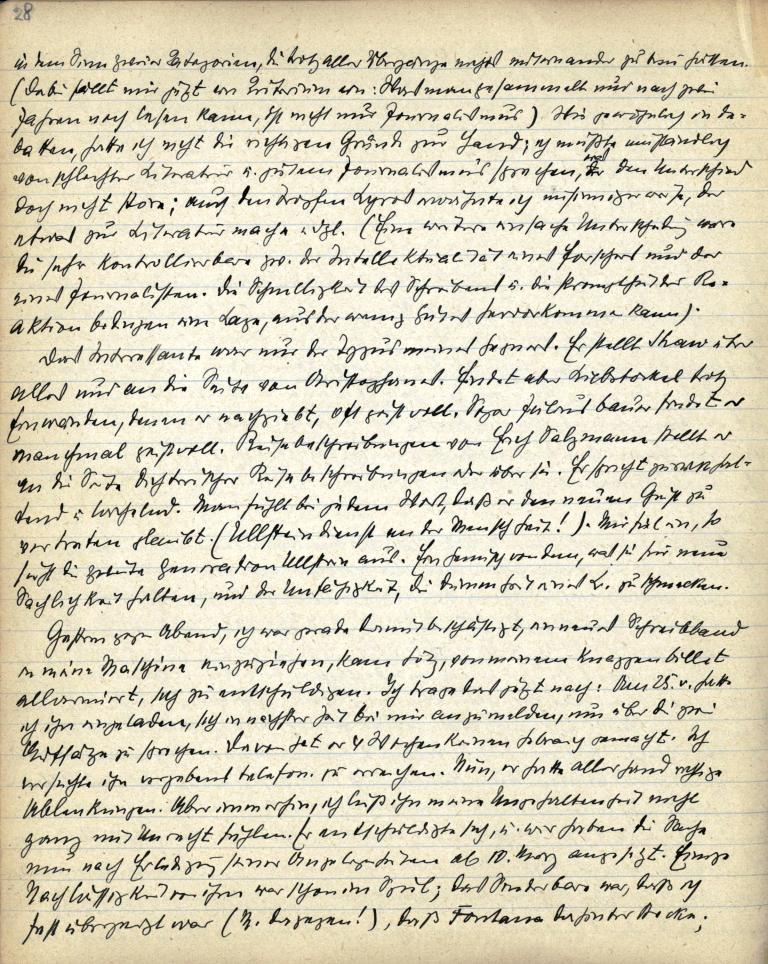 28
in dem Sinn zweier Kategorien, die trotz aller Übergänge nichts miteinander zu tun hätten.
(Dabei fällt mir jetzt ein Kriterium ein: Was man gesammelt nur nach zwei
Jahren noch lesen kann, ist nicht nur Journalismus) Wie gewöhnlich in De-
batten, hatte ich nicht die richtigen Gründe zur Hand; ich müßte umständlich
von schlechter Literatur u. gutem Journalismus sprechen, was den Unterschied
doch nicht störe; auch den Tropfen Lyros erwähnte ich unsinnigerweise, der
etwas zur Literatur mache udgl. (Eine weitere einfache Unterscheidung wäre
die sehr kontrollierbare zw. der Intellektualität eines Forschers und der
eines Journalisten. Die Schnelligkeit des Schreibens u. die Promptheit der Re-
aktion bedingen eine Lage, aus der wenig Gutes hervorkommen kann).
Das Interessante war nur der Typus meines Gegners. Er stellt Shaw über
alles und an die Seite von Aristophanes. Findet aber Liebstoeckl trotz
Einwänden, denen er nachgiebt, oft geistvoll. Sogar Julius Bauer findet er
manchmal geistvoll. Reisebeschreibungen von Erich Salzmann stellt er
an die Seite dichterischer Reisebeschreibungen oder über sie. Er spricht zurückhal-
tend u. lächelnd. Man fühlt bei jedem Wort, daß er den neuen Geist zu
vertreten glaubt. (Ullsteindienst an der Menschheit!). Mir fiel ein, so
sieht die zweite Generation Ullstein aus. Ein Gemisch von dem, was sie für neue
Sachlichkeit halten, und der Unfähigkeit, die Dummheit eines L. zu schmecken.
Gestern gegen Abend, ich war gerade damit beschäftigt, ein neues Schreibband
in meine Maschine einzuziehen, kam von meinem knappen Billet
allarmiert, sich zu entschuldigen. Ich trage das jetzt nach: Am 25. v. hatte
ich ihn eingeladen, sich in nächster Zeit bei mir anzumelden, um über die zwei
Aufsätze zu sprechen. Davon hat er 4 Wochen keinen Gebrauch gemacht. Ich
versuchte ihn vergebens telefon. zu erreichen. Nun, er hatte allerhand wichtige
Ablenkungen. Aber immerhin, ich ließ ihn meine Ungehaltenheit nicht
ganz mit Unrecht fühlen. Er entschuldigte sich, u. wir haben die Sache
nun nach Erledigung seiner Angelegenheiten ab 10. März angesetzt. Einige
Nachlässigkeit von ihm war schon im Spiel; das Sonderbare war, daß ich
fest überzeugt war (dagegen!), daß Fontana dahinter stecke;